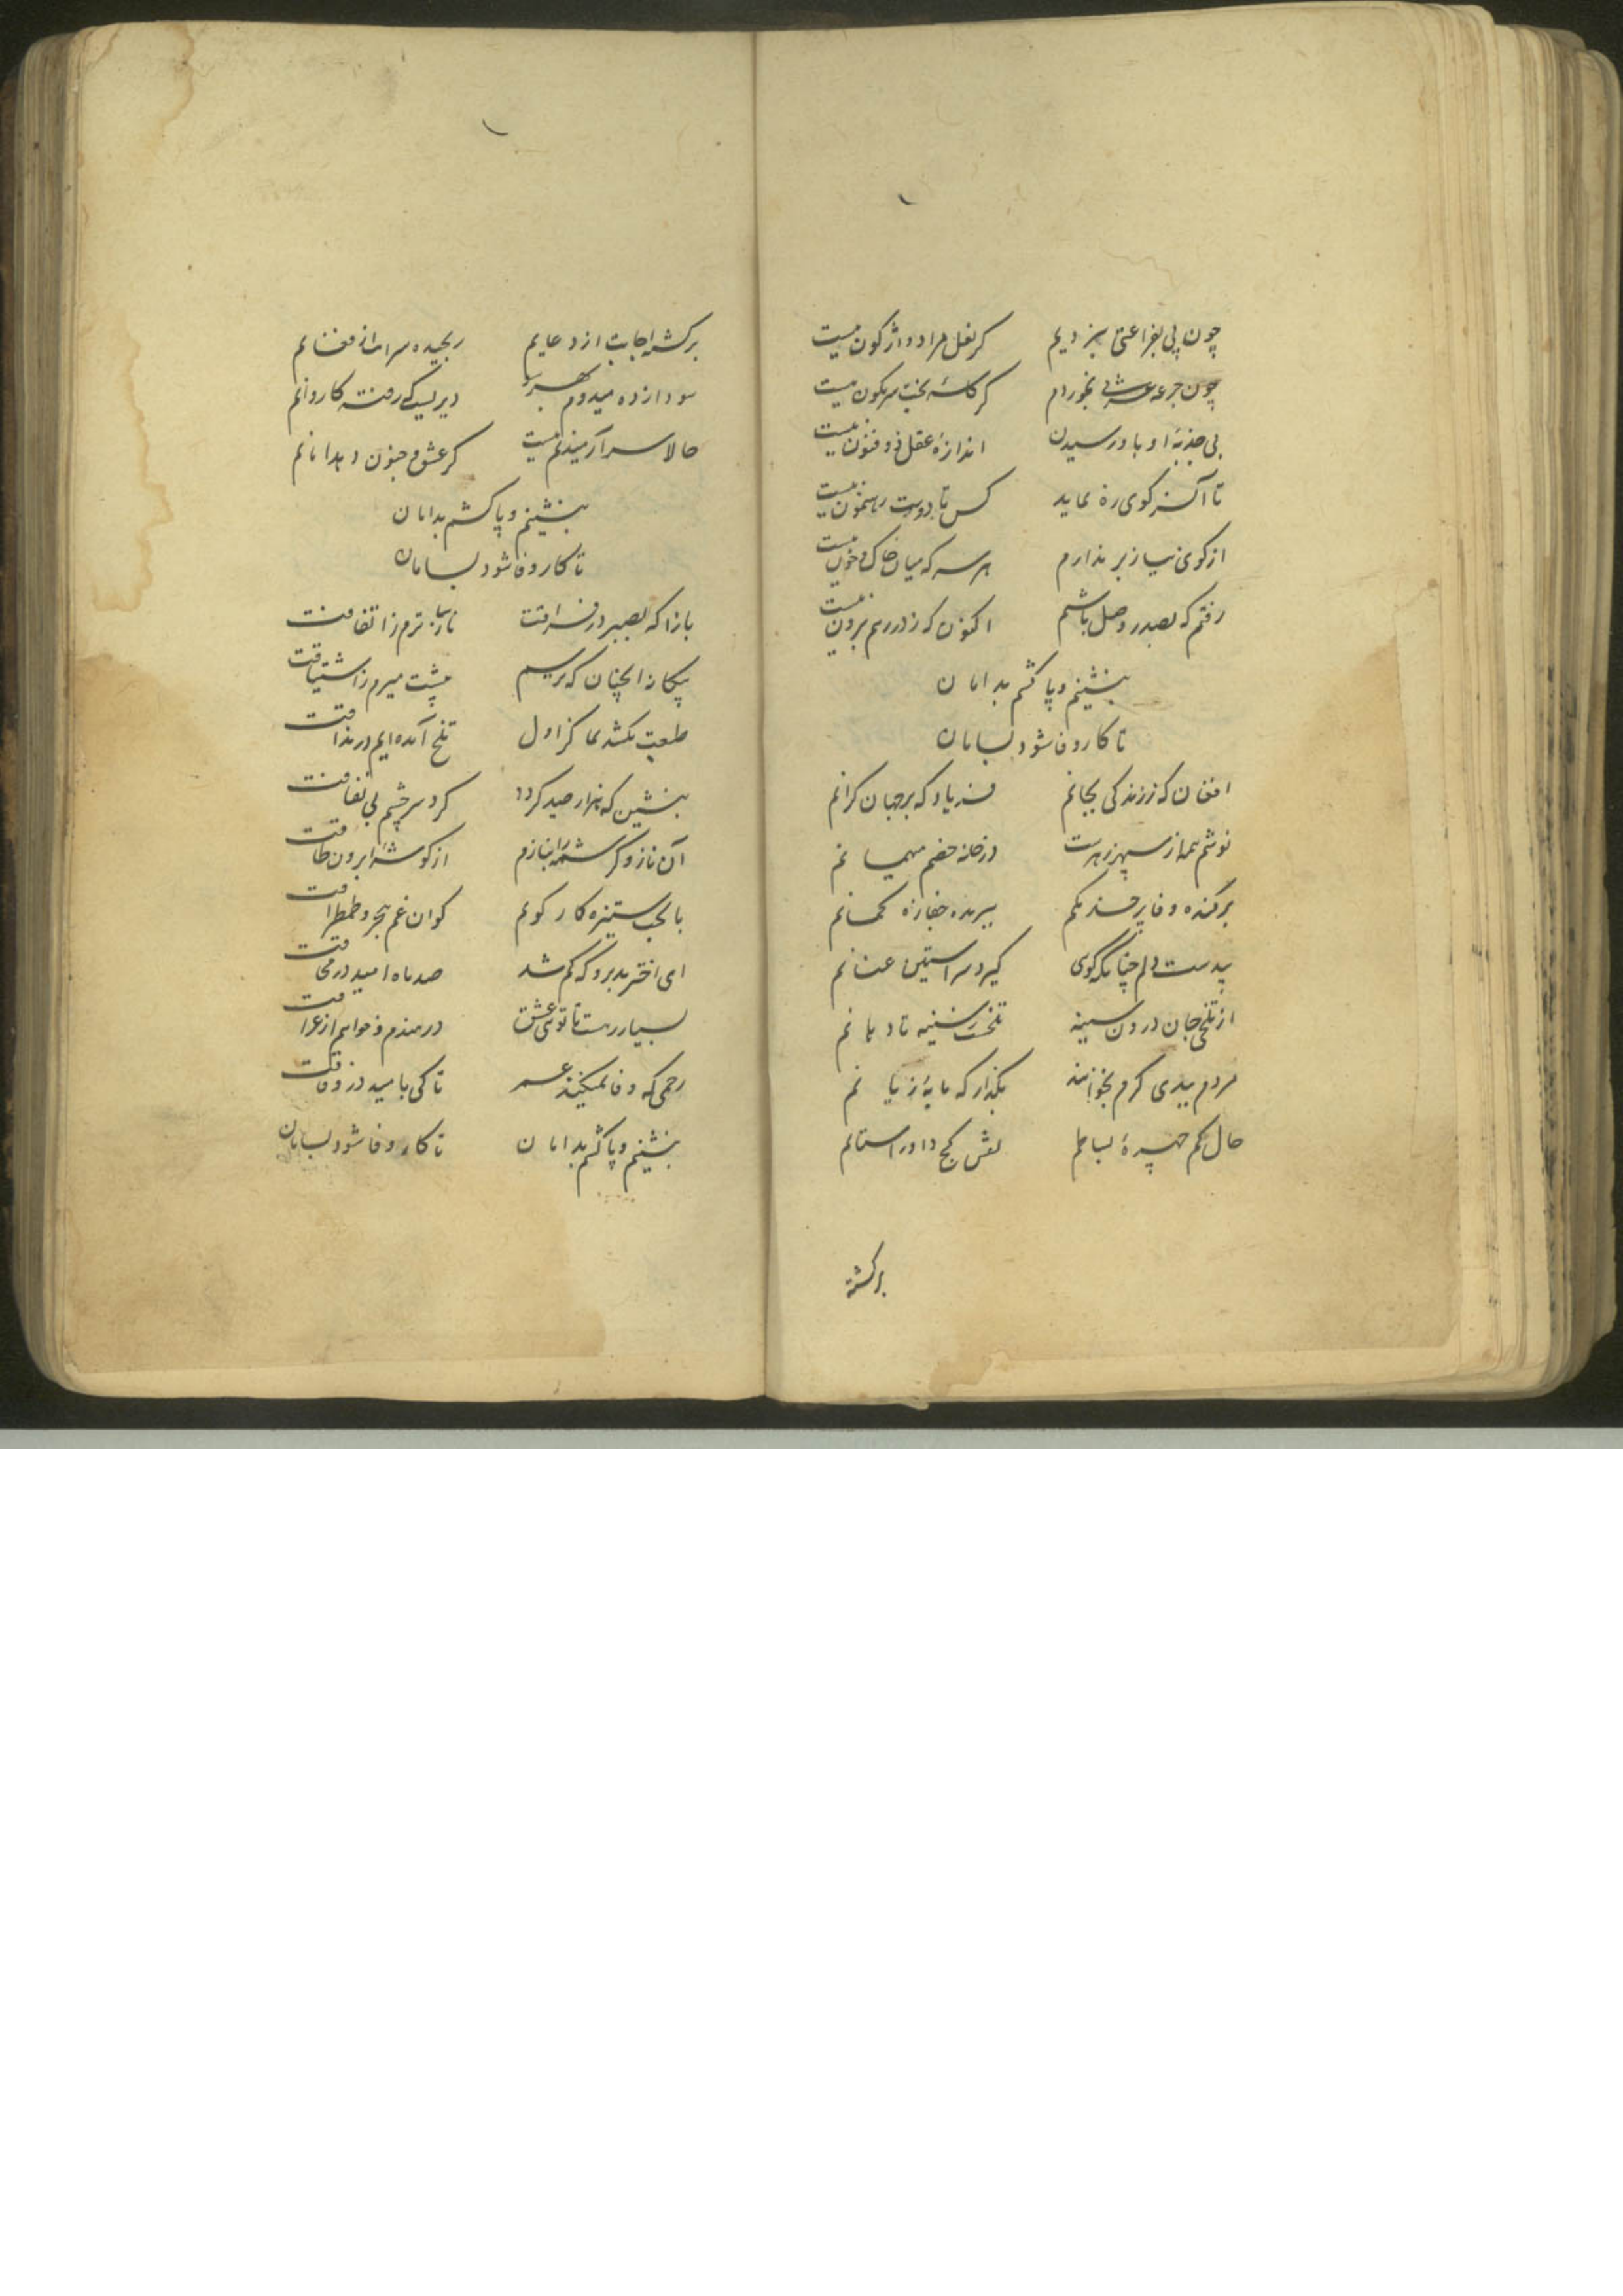 چون پی بفراغتی نبردیم گر نعل مراد واژگون نیست
چون جرعه عشرتی نخوردم گر کاسهٔ بخت سرنگون نیست
بی جذبهٔ او بادر رسیدن اندازهٔ عقل ذوفنون نیست
تا آنسر کوی ره نماید کس تا در دوست رهنمون نیست
از کوی نیاز بر ندارم هر سر که میان خاک و خون نیست
رفتم که بصدر وصل باشم اکنون که ز در رهم برون نیست
بنشینم و پا کشم بدامان
تا کار وفا شود بسامان
افغان که ز زندگی بجانم فریاد که بر جهان گرانم
نوشم همه از سپهر زهرست در خانه خصم میهمانم
برکنده وفا بر حسد یکم ببریده جفا زه کمانم
پیدست دلم چنانکه گوی گیرد سر آستین عنانم
از تلخی جان درون سینه تلخست ز سینه تا دهانم
مردم ببدی گرم نخوانند بگذار که مایهٔ زیانم
حال کم چهرهٔ بساطم نقش کج داو راستانم
برگشته
برگشته اجابت از دعایم رنجیده سرائت از فغانم
سودازده میدوم بهر سو دیریست که رفته کاروانم
حالا سر آرمیدنم نیست گر عشق و جنون دهد امانم
بنشینم و پا کشم بدامان
تا کار وفا شود بسامان
باز آ که بصبر در فراقت نازک ترم از اتفاقت
بیگانه چنان که برسیم پیشت میرم ز اشتیاقت
طلعت نکشد نما کز اول تلخ آمده ایم در مذاقت
بنشین که هزار صید گردد گرد سر چشم بی نفاقت
آن ناز و کرشمه را بنازم از گوشهٔ ابروان طاقت
با لخت ستیزه کار گویم کو آن غم هجر و طمطراقت
ای اختر بد برو که گم شد صد ماه امید در محاقت
بسیار رهست تا تو ای عشق در هندم و خواهم از عراقت
رحمی که وفا نمیکند عمر تا کی بامید در وفاقت
بنشینم و پا کشم بدامان تا کار وفا شود بسامان